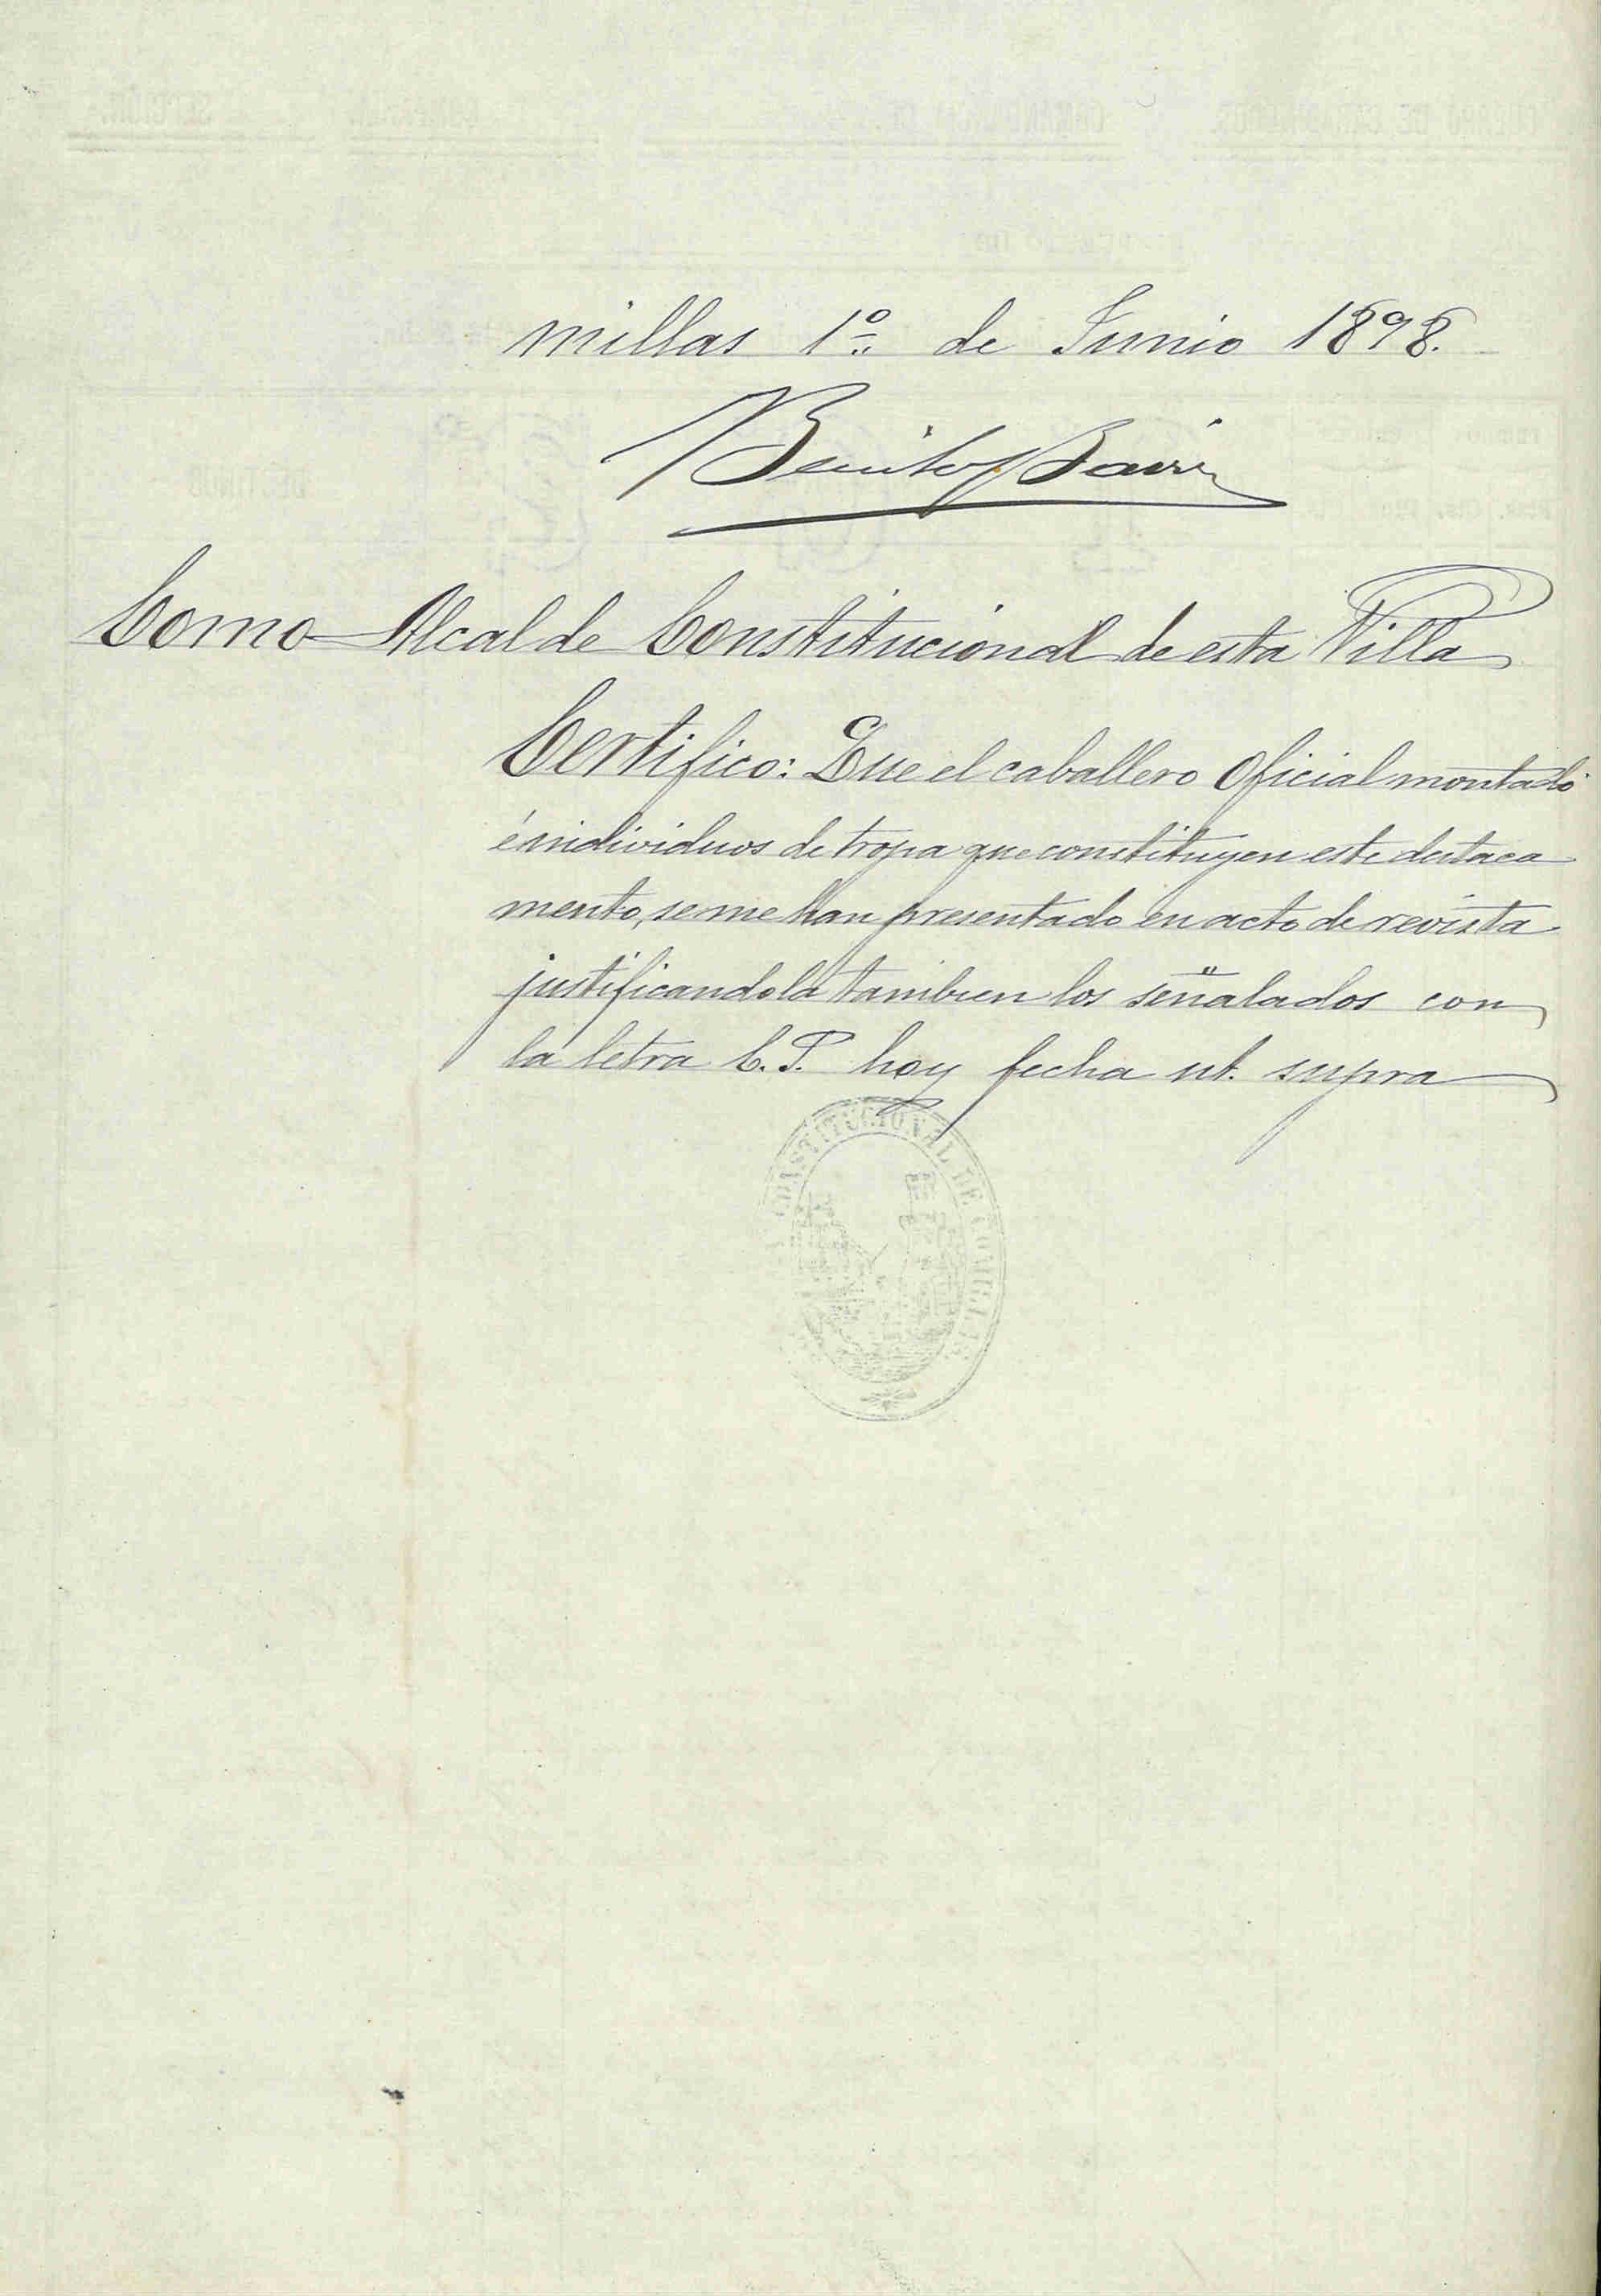 millas 1º de Junio 1898.
Benito
Como Alcalde Constitucional de esta Villa
Certifico: Que el caballero Oficial montado
é individuos de tropa que constituyen este destaca
mento, se me han presentado en acto de revista
justificandola tambien los señalados con
la letra C.P. hoy fecha ut. supra
CONSTITUCIONAL DE COMILLAS